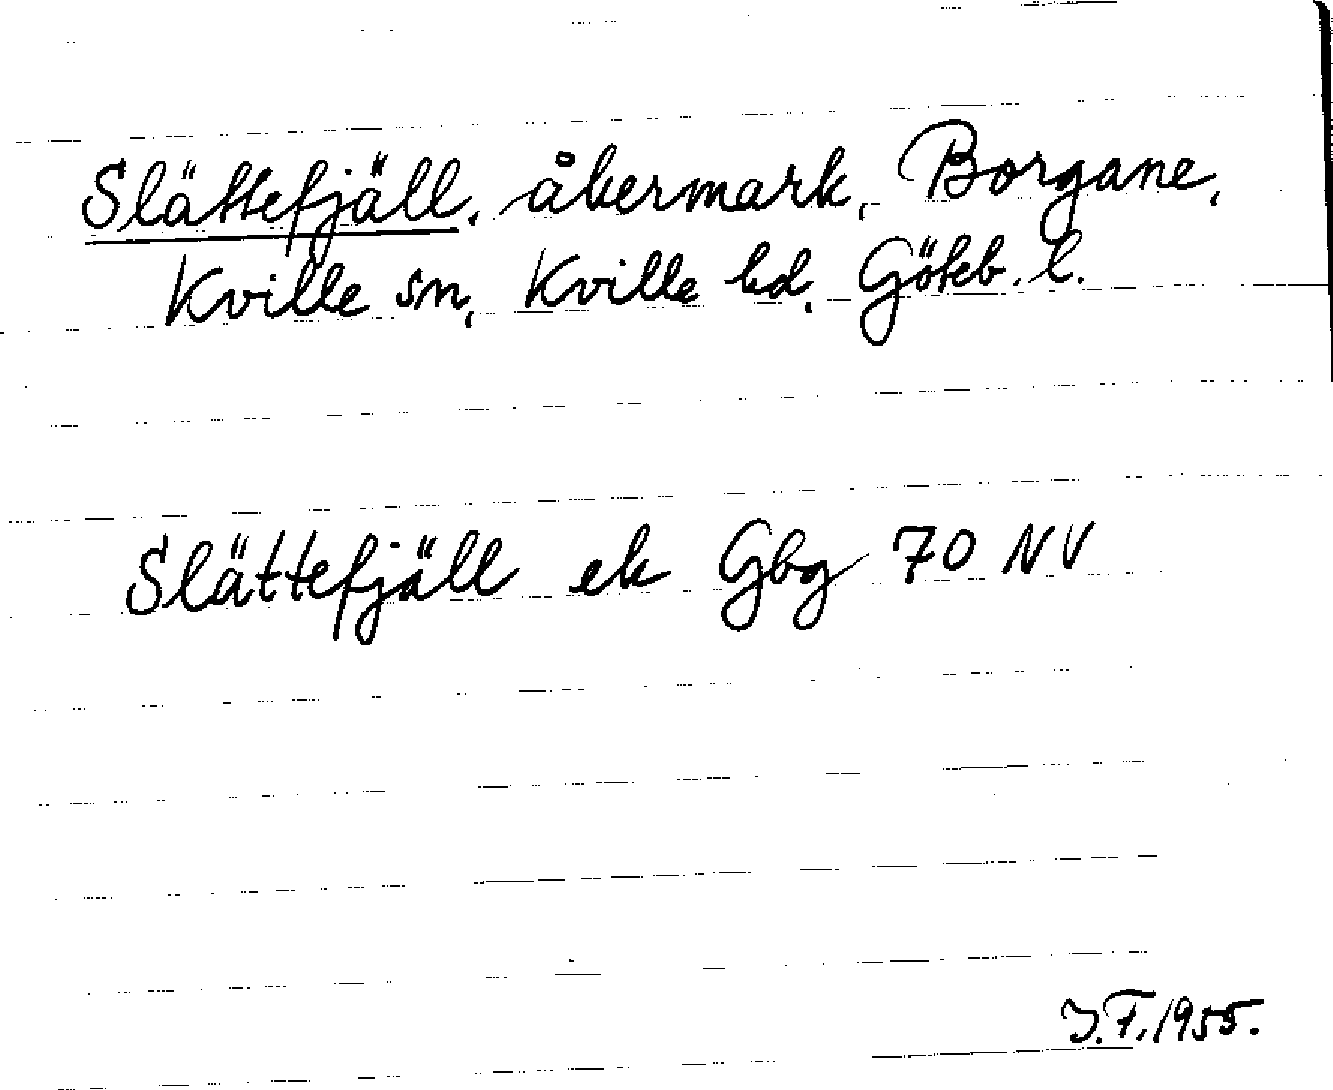 Slättefjäll, åkermark, Borgane,
Kville sn, Kville hd, Göteb. l.
Slättefjäll ek Gbg 70 NV
J.F. 1955.